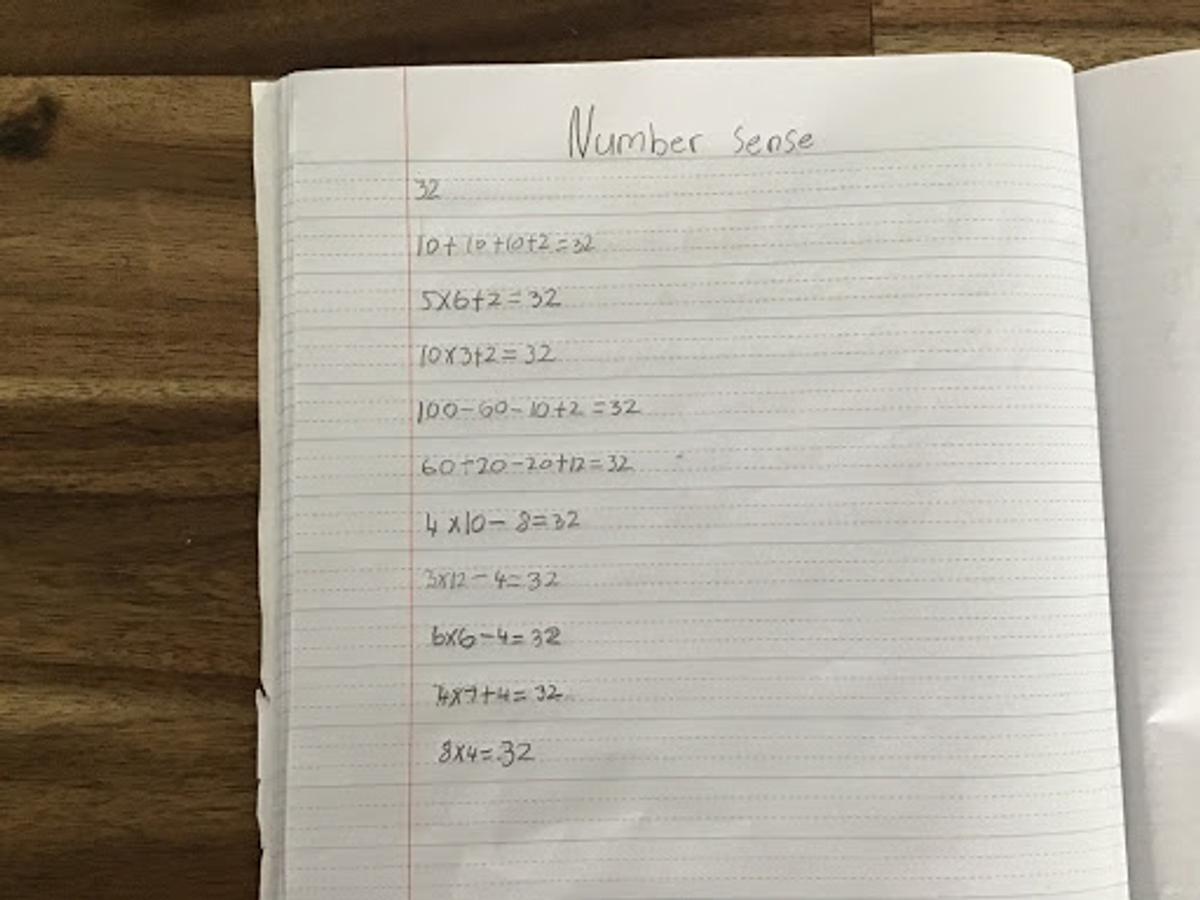 Number sense
32
10+10+10+2=32
5x6+2=32
10x3+2=32
100-60-10+2=32
60-20-20+12=32
4x10-8=32
3x12-4=32
6x6-4=32
4x7+4=32
8x4=32